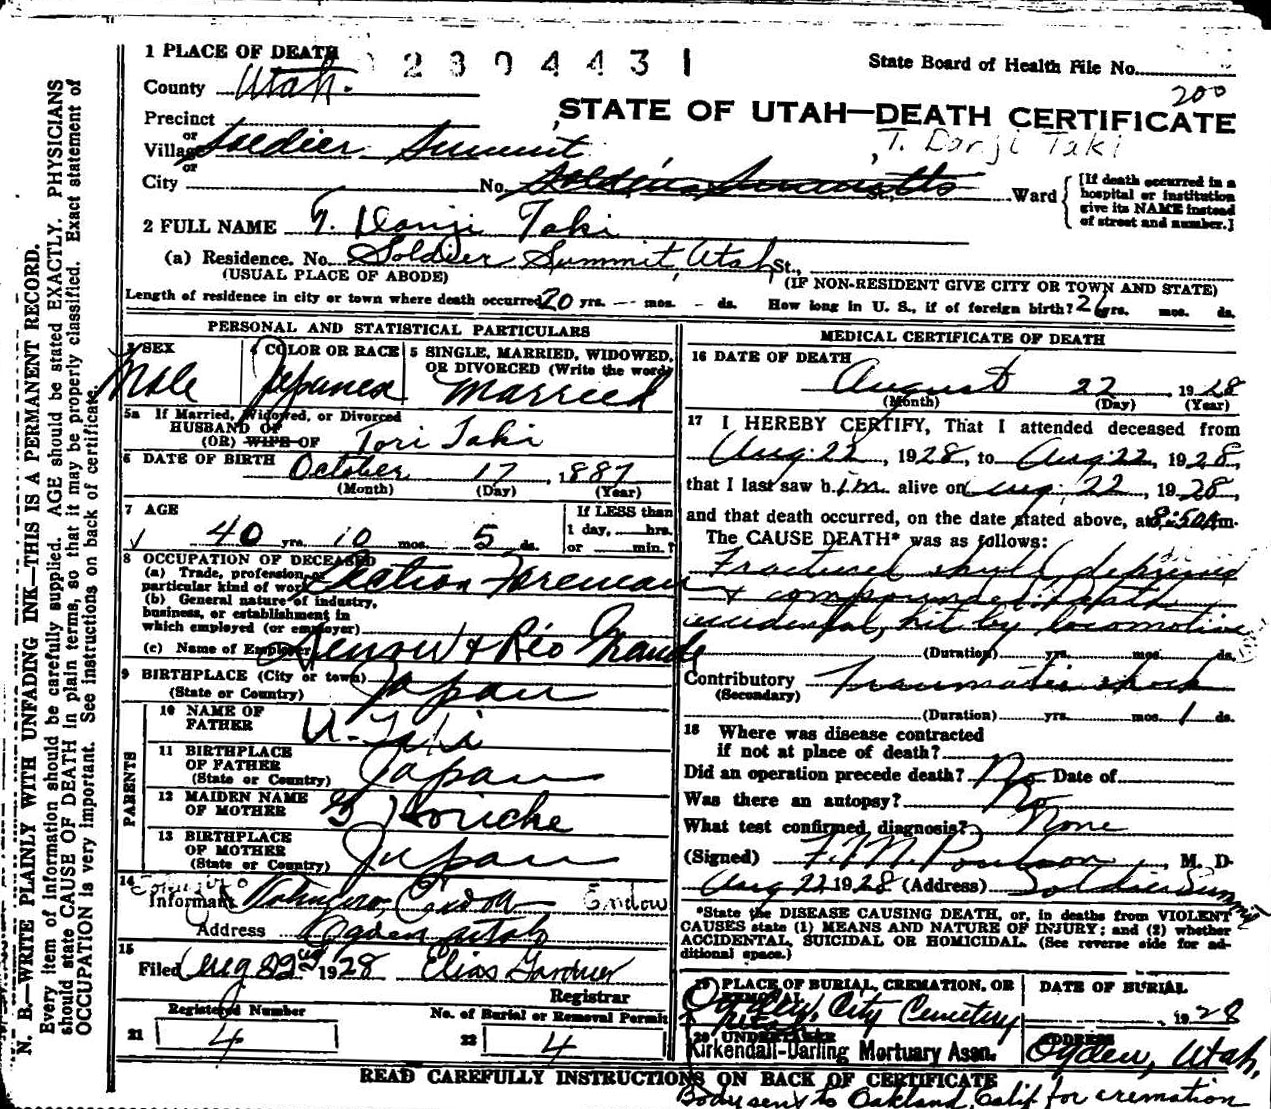 1 PLACE OF DEATH
2304431
State Board of Health File No.
County Utah.
200
STATE OF UTAH—DEATH CERTIFICATE
Precinct
T. Danji Taki
or
Village Soldier Summit
or
City No. Ward
[If death occurred in a hospital or institution give its NAME instead of street and number.]
2 FULL NAME T. Danji Taki
(a) Residence. No. Soldier Summit, Utah St.,
(USUAL PLACE OF ABODE) (IF NON-RESIDENT GIVE CITY OR TOWN AND STATE)
Length of residence in city or town where death occurred 20 yrs. mos. ds. How long in U. S., if of foreign birth? 26 yrs. mos. ds.
PERSONAL AND STATISTICAL PARTICULARS
3 SEX
Male
4 COLOR OR RACE
Japanese
5 SINGLE, MARRIED, WIDOWED, OR DIVORCED (Write the word)
Married
5a If Married, Widowed, or Divorced
HUSBAND OF
(OR) WIFE OF Tori Taki
6 DATE OF BIRTH October 17, 1887
(Month) (Day) (Year)
7 AGE
40 yrs. 10 mos. 5 ds.
If LESS than
1 day, hrs.
or min.?
8 OCCUPATION OF DECEASED
(a) Trade, profession, or
particular kind of work Section Foreman
(b) General nature of industry,
business, or establishment in
which employed (or employer)
(c) Name of Employer Denver & Rio Grande
9 BIRTHPLACE (City or town)
(State or Country) Japan
PARENTS
10 NAME OF
FATHER U. Taki
11 BIRTHPLACE
OF FATHER
(State or Country) Japan
12 MAIDEN NAME
OF MOTHER G Horiche
13 BIRTHPLACE
OF MOTHER
(State or Country) Japan
14
Informant Endow
Address Ogden, Utah
15
Filed Aug 22 1928 Elias Gardner
Registrar
Registered Number
21 4
No. of Burial or Removal Permit
22 4
MEDICAL CERTIFICATE OF DEATH
16 DATE OF DEATH
August 22, 1928
(Month) (Day) (Year)
17 I HEREBY CERTIFY, That I attended deceased from
Aug. 22, 1928, to Aug. 22, 1928,
that I last saw him alive on Aug. 22, 1928,
and that death occurred, on the date stated above, at 8:50 A m.
The CAUSE DEATH* was as follows:
Fractured skull, depressed
& compounded, death
accidental, hit by locomotive
(Duration) yrs. mos. ds.
Contributory Traumatic shock
(Secondary)
(Duration) yrs. mos. 1 ds.
18 Where was disease contracted
if not at place of death?
Did an operation precede death? No Date of
Was there an autopsy? No
What test confirmed diagnosis? None
(Signed) F. M. Poulson, M. D.
Aug 22 1928 (Address) Soldier Summit
*State the DISEASE CAUSING DEATH, or, in deaths from VIOLENT
CAUSES state (1) MEANS AND NATURE OF INJURY; and (2) whether
ACCIDENTAL, SUICIDAL OR HOMICIDAL. (See reverse side for additional space.)
19 PLACE OF BURIAL, CREMATION, OR REMOVAL
Ogden City Cemetery
Utah
DATE OF BURIAL
1928
20 UNDERTAKER
Kirkendall-Darling Mortuary Assn.
ADDRESS
Ogden, Utah.
READ CAREFULLY INSTRUCTIONS ON BACK OF CERTIFICATE
Body sent to Oakland, Calif for cremation
N. B.—WRITE PLAINLY WITH UNFADING INK—THIS IS A PERMANENT RECORD.
Every item of information should be carefully supplied. AGE should be stated EXACTLY. PHYSICIANS
should state CAUSE OF DEATH in plain terms, so that it may be properly classified. Exact statement of
OCCUPATION is very important. See instructions on back of certificate.